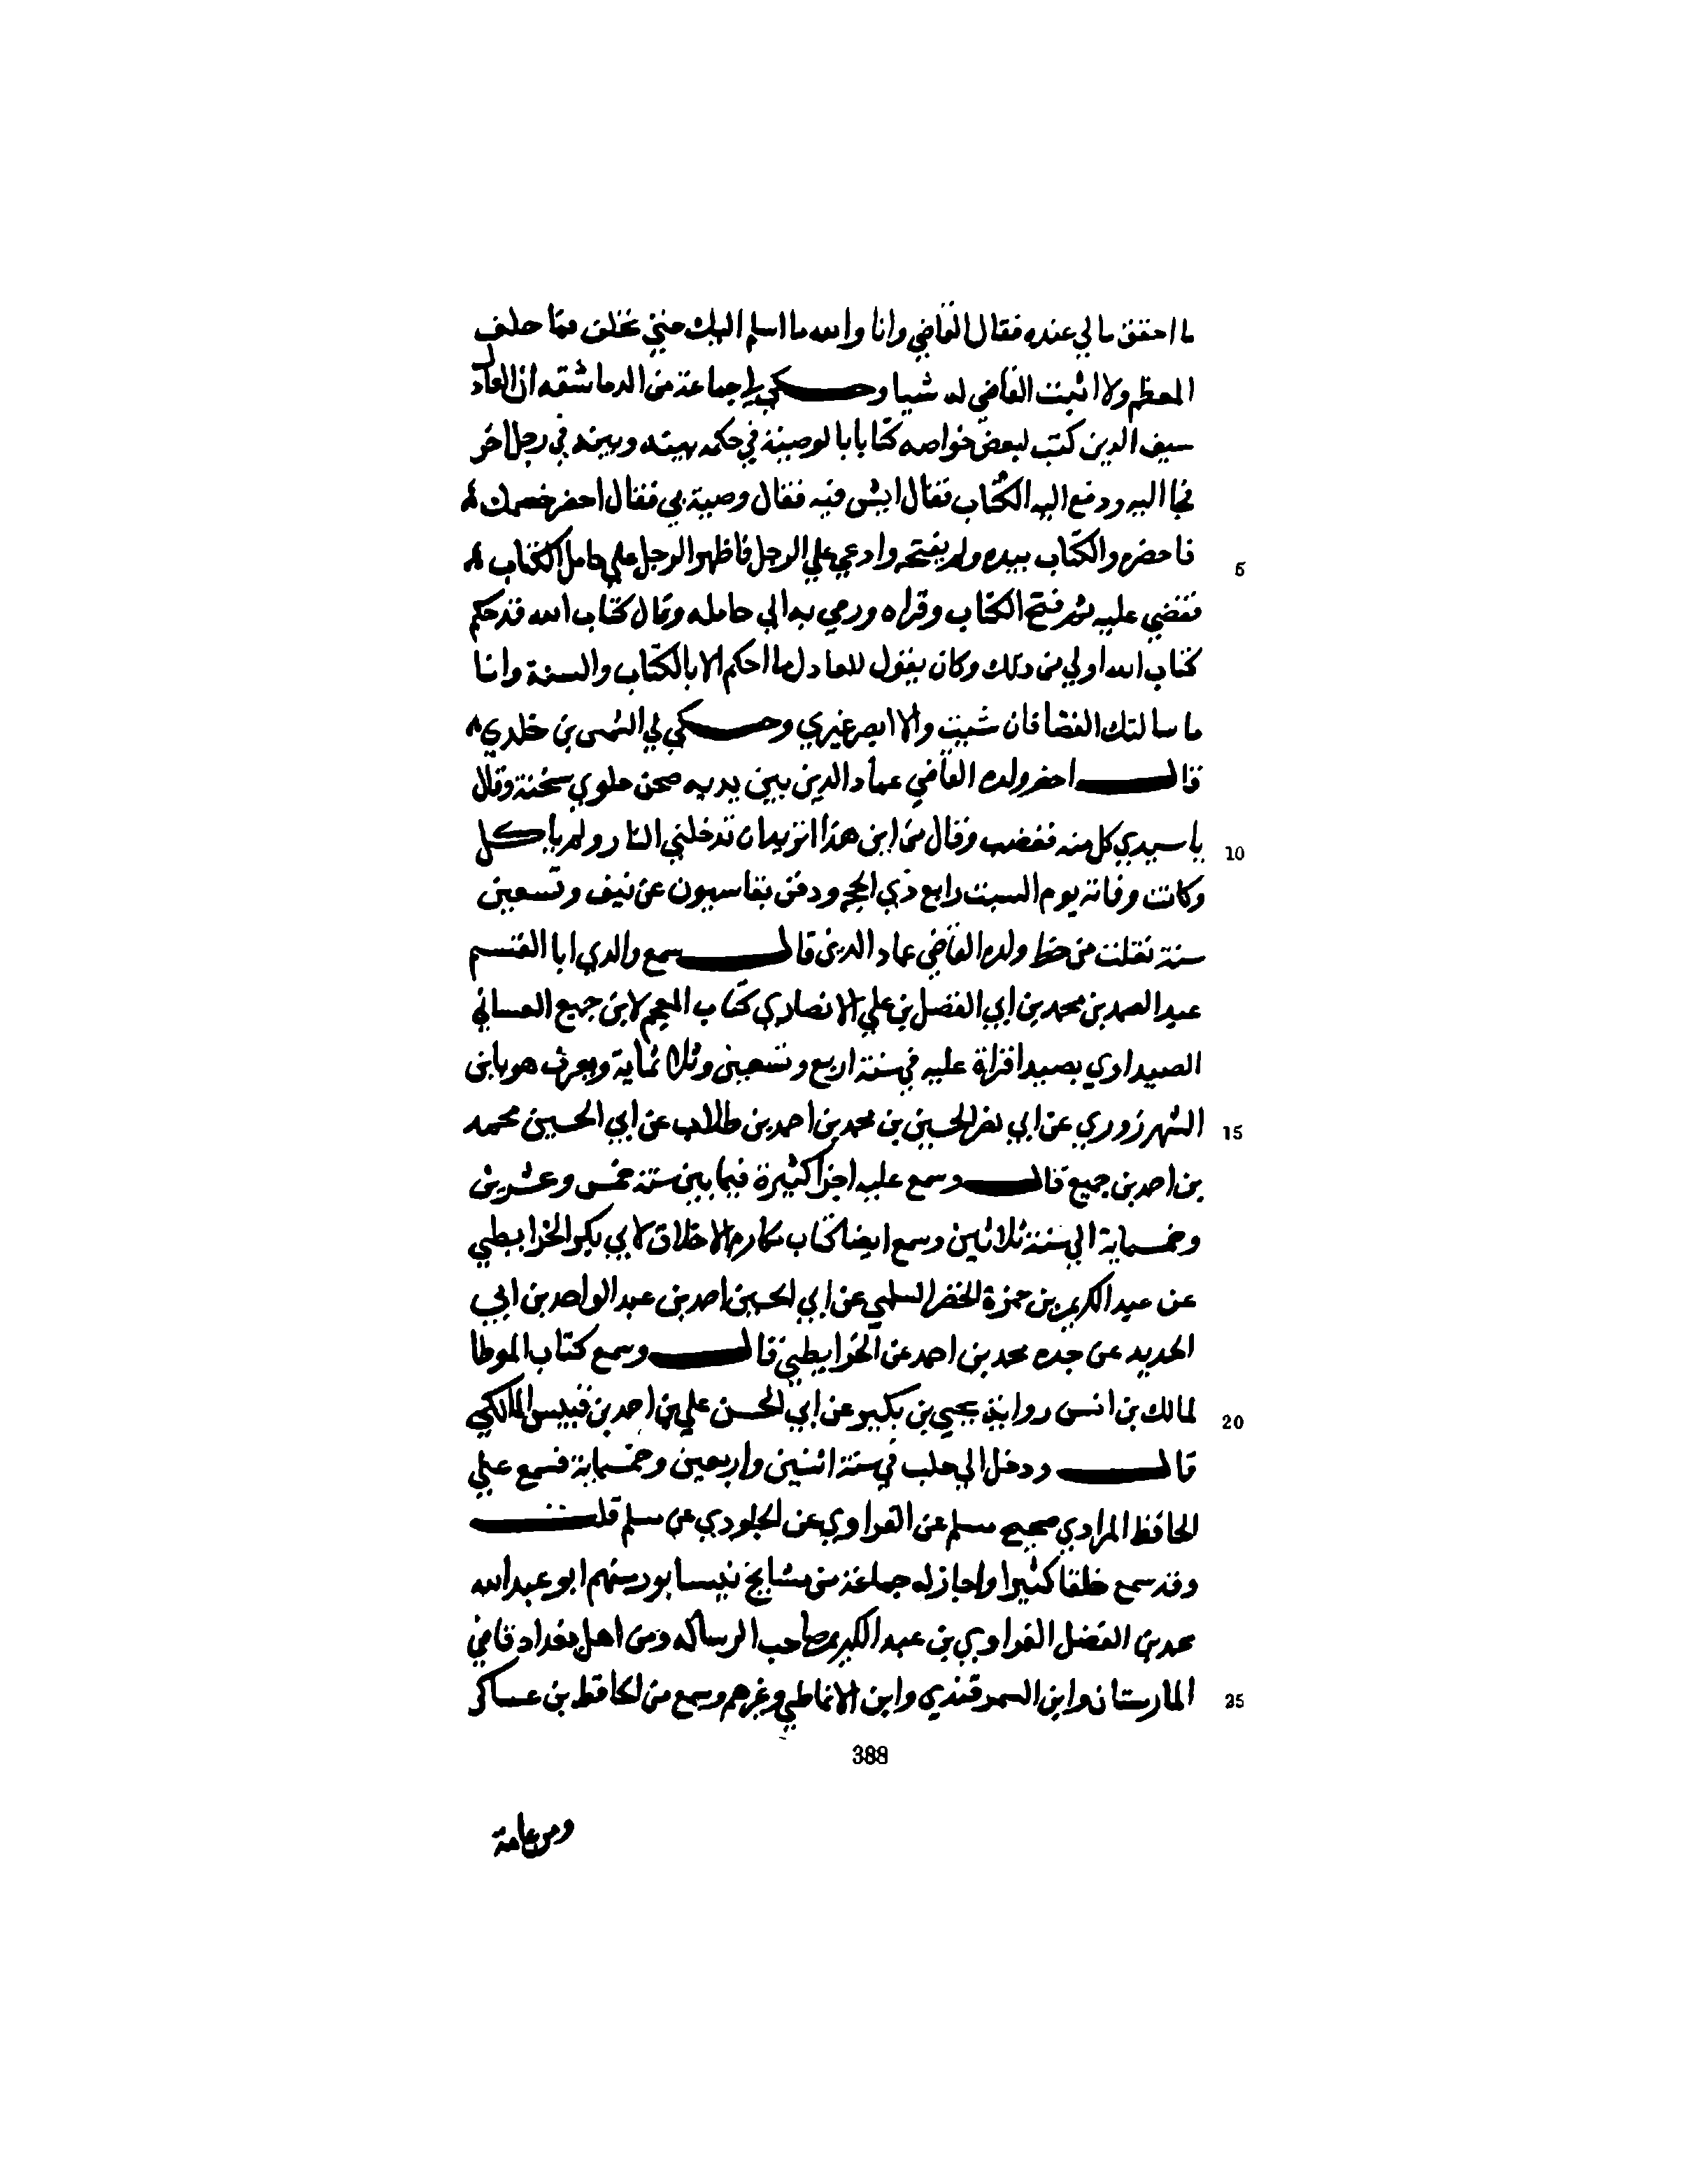 ما احقق مالي عنده فقال القاضي وانا والله ما اسلم اليك حتي تحلف فما حلف
المعظم ولا اثبت القاضي له شيا وحكي لي جماعة من الدماشقه ان العادل
سيف الدين كتب لبعض خواصه كتابا بالوصية في حكمه بينه وبينه في رجل اخر
فجا اليه ودفع اليه الكتاب فقال ايش فيه فقال وصية بي فقال احضر خصمك
فاحضره والكتاب بيده ولم يفتحه وادعي علي الرجل فاظهر الرجل علي حامل الكتاب 5
فقضي عليه ثم فتح الكتاب وقراه ورمي به الي حامله وقال كتاب الله قد حكم
كتاب الله اولي من ذلك وكان يقول للعادل ما احكم الا بالكتاب والسنة وانا
ما سالتك القضا فان شيت والا ابصر غيري وحكي لي الشمس بن خلدي
قال احضر ولده القاضي عماد الدين بين يديه صحن حلوي سخنة وقال
يا سيدي كل منه فغضب وقال من اين هذا اتريد ان تدخلني النار ولم ياكل 10
وكانت وفاته يوم السبت رابع ذي الحجه ودفن بقاسيون عن نيف وتسعين
سنة نقلت من خط ولده القاضي عماد الدين قال سمع والدي ابا القسم
عبد الصمد بن محمد بن ابي الفضل بن علي الانصاري كتاب المعجم لابن جميع الغساني
الصيداوي بصيدا قراة عليه في سنة اربع وتسعين وثلاثماية ويعرف هو بابن
الشهرزوري عن ابي نصر الحسين بن محمد بن احمد بن طلاب عن ابي الحسين محمد 15
بن احمد بن جميع قال وسمع عليه اجزا كثيرة فيما بين سنة خمس وعشرين
وخمسماية الي سنة ثلاثين وسمع ايضا كتاب مكارم الاخلاق لابي بكر الخرايطي
عن عبد الكريم بن حمزة الخضر السلمي عن ابي الحسين احمد بن عبد الواحد بن ابي
الحديد عن جده محمد بن احمد عن الخرايطي قال وسمع كتاب الموطا
لمالك بن انس رواية يحيي بن بكير عن ابي الحسن علي بن احمد بن قبيس المالكي 20
قال ودخل الي حلب في سنة اثنين واربعين وخمسماية فسمع علي
الحافظ المرادي صحيح مسلم عن الفراوي عن الجلودي عن مسلم قلت
وقد سمع خلقا كثيرا واجاز له جماعة من مشايخ نيسابور منهم ابو عبد الله
محمد بن الفضل الفراوي بن عبد الكريم صاحب الرساله ومن اهل بغداد قاضي
المارستان وابن السمرقندي وابن الانماطي وغيرهم وسمع من الحافظ بن عساكر 25
388
ومن عامة